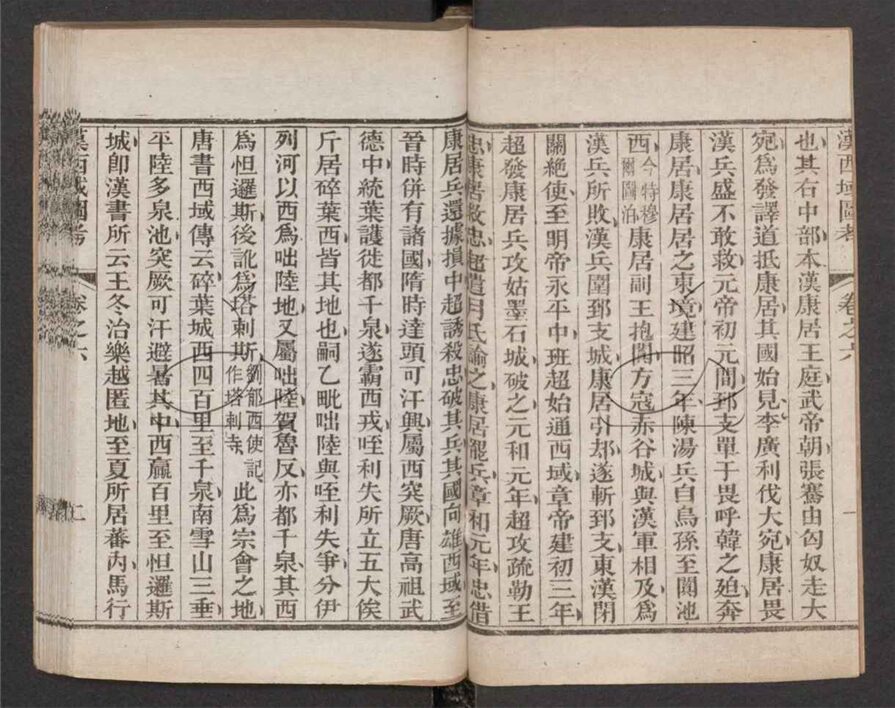 漢西域圖考 卷之六 一
也其右中部本漢康居王庭武帝朝張騫由匈奴走大
宛爲發譯道抵康居其國始見李廣利伐大宛康居畏
漢兵盛不敢救元帝初元間郅支單于畏呼韓之廹奔
康居康居居之東境建昭三年陳湯兵自烏孫至闐池
西今特穆爾圖泊康居副王抱闐方寇赤谷城與漢軍相及爲
漢兵所敗漢兵圍郅支城康居引却遂斬郅支東漢閉
關絶使至明帝永平中班超始通西域章帝建初三年
超發康居兵攻姑墨石城破之元和元年超攻疏勒王
忠康居救忠超遣月氏諭之康居罷兵章和元年忠借
康居兵還據損中超誘殺忠破其兵其國向雄西域至
晉時併有諸國隋時達頭可汗興屬西突厥唐高祖武
德中統葉護徙都千泉遂霸西戎咥利失所立五大俟
斤居碎葉西皆其地也嗣乙毗咄陸與咥利失爭分伊
列河以西爲咄陸地又屬咄陸賀魯反亦都千泉其西
爲怛邏斯後訛爲塔剌斯劉郁西使記作塔剌寺此爲宗會之地
唐書西域傳云碎葉城西四百里至千泉南雪山三垂
平陸多泉池突厥可汗避暑其中西贏百里至怛邏斯
城卽漢書所云王冬治樂越匿地至夏所居蕃內馬行
漢西域圖考 卷之六 二